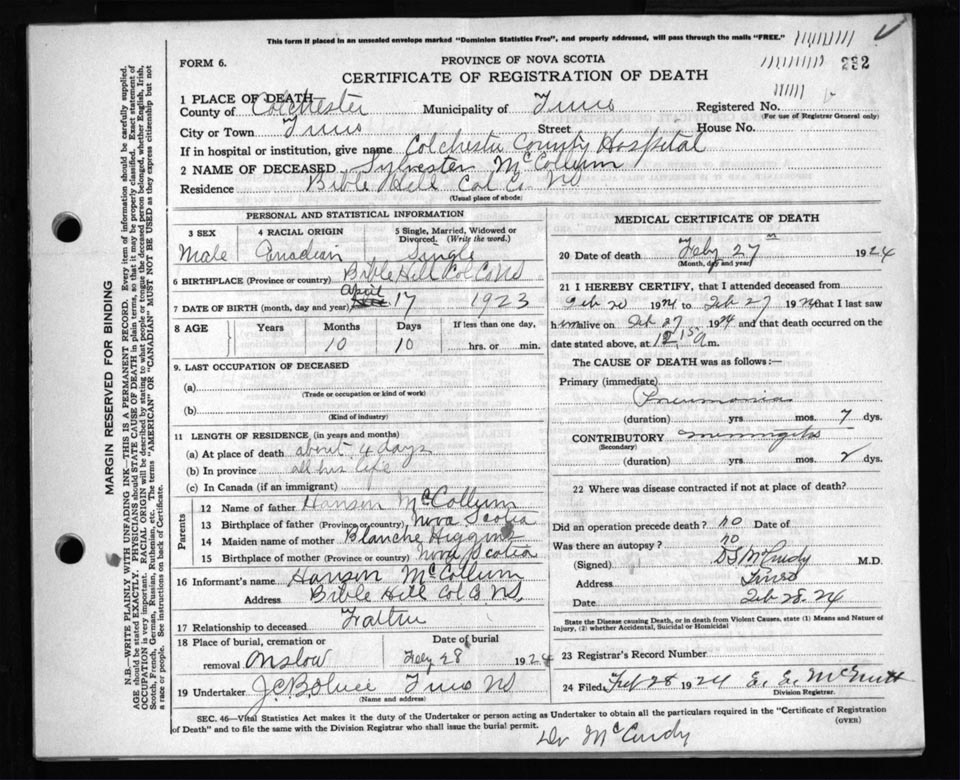 This form if placed in an unsealed envelope marked "Dominion Statistics Free", and properly addressed, will pass through the mails "FREE."
FORM 6.
PROVINCE OF NOVA SCOTIA
232
CERTIFICATE OF REGISTRATION OF DEATH
1 PLACE OF DEATH
County of Colchester Municipality of Truro Registered No.
(For use of Registrar General only)
City or Town Truro Street House No.
If in hospital or institution, give name Colchester County Hospital
2 NAME OF DECEASED Sylvester McCollum
Residence Bible Hill Col Co NS
(Usual place of abode)
PERSONAL AND STATISTICAL INFORMATION
3 SEX 4 RACIAL ORIGIN 5 Single, Married, Widowed or Divorced. (Write the word.)
Male Canadian Single
6 BIRTHPLACE (Province or country) Bible Hill Col Co NS
7 DATE OF BIRTH (month, day and year) April 17 1923
8 AGE Years Months Days If less than one day,
10 10 hrs. or min.
9. LAST OCCUPATION OF DECEASED
(a)
(Trade or occupation or kind of work)
(b)
(Kind of industry)
11 LENGTH OF RESIDENCE (in years and months)
(a) At place of death about 4 days
(b) In province all his life
(c) In Canada (if an immigrant)
Parents
12 Name of father Hanson McCollum
13 Birthplace of father (Province or country) Nova Scotia
14 Maiden name of mother Blanche Higgins
15 Birthplace of mother (Province or country) Nova Scotia
16 Informant's name Hanson McCollum
Address Bible Hill Col Co NS,
17 Relationship to deceased Father
18 Place of burial, cremation or removal Onslow Date of burial Feby 28 1924
19 Undertaker Truro NS
(Name and address)
MEDICAL CERTIFICATE OF DEATH
20 Date of death Feby 27th 1924
(Month, day and year)
21 I HEREBY CERTIFY, that I attended deceased from
Feb 20 1924 to Feb 27 1924 that I last saw
him alive on Feb 27 1924 and that death occurred on the
date stated above, at 12.15 a m.
The CAUSE OF DEATH was as follows:—
Primary (immediate)
Pneumonia
(duration) yrs. mos. 7 dys.
CONTRIBUTORY meningitis
(Secondary)
(duration) yrs. mos. 2 dys.
22 Where was disease contracted if not at place of death?
Did an operation precede death? no Date of
Was there an autopsy? no
(Signed) McCurdy M.D.
Address Truro
Date Feb 28. 24
State the Disease causing Death, or in death from Violent Causes, state (1) Means and Nature of Injury, (2) whether Accidental, Suicidal or Homicidal
23 Registrar's Record Number
24 Filed Feb 28 1924 E. E. McNutt
Division Registrar.
SEC. 46—Vital Statistics Act makes it the duty of the Undertaker or person acting as Undertaker to obtain all the particulars required in the "Certificate of Registration
of Death" and to file the same with the Division Registrar who shall issue the burial permit.
(OVER)
Dr McCurdy
MARGIN RESERVED FOR BINDING
N.B.—WRITE PLAINLY WITH UNFADING INK—THIS IS A PERMANENT RECORD. Every item of information should be carefully supplied.
AGE should be stated EXACTLY. PHYSICIANS should STATE CAUSE OF DEATH in plain terms, so that it may be properly classified. Exact statement of
OCCUPATION is very important. RACIAL ORIGIN will be described by stating to what people or tongue the deceased person belonged, whether English, Irish,
Scotch, French, German, Russian, Ruthenian, etc. The terms "AMERICAN" OR "CANADIAN" MUST NOT BE USED as they express citizenship but not
a race or people. See instructions on back of Certificate.